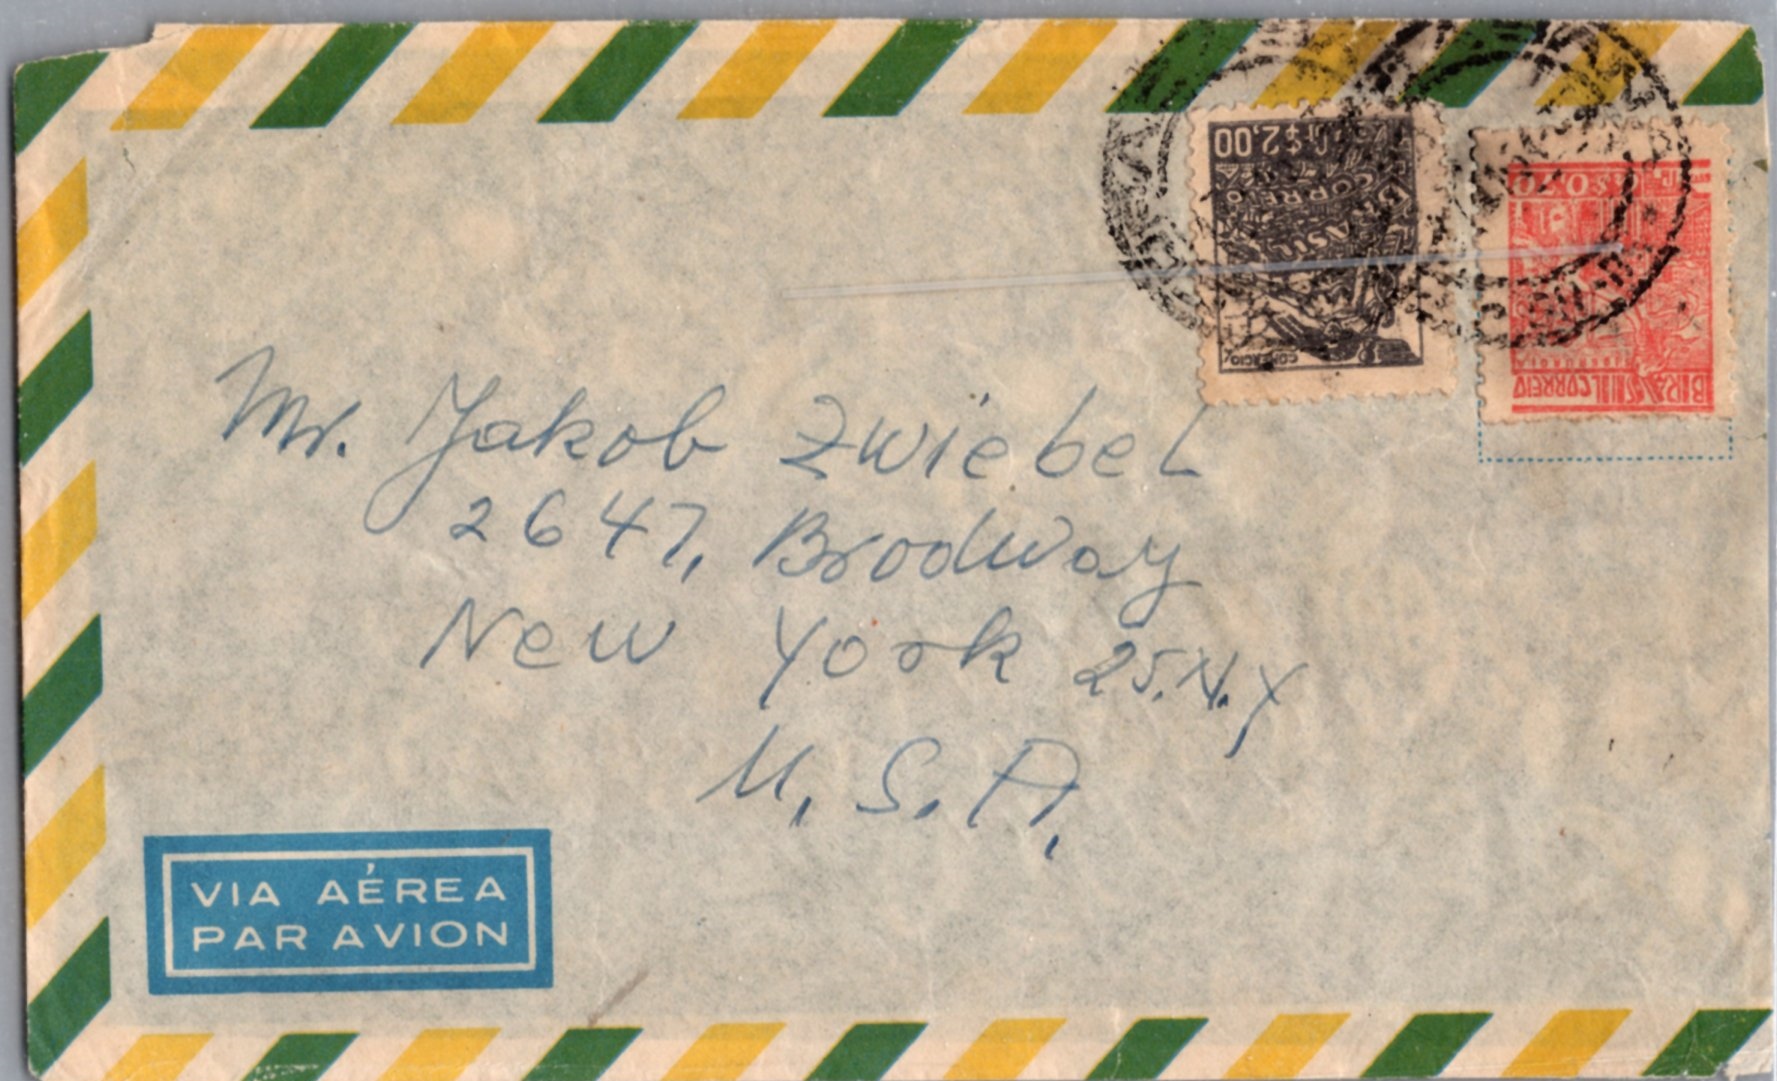 Cr$ 2,00
BRASIL
CORREIO
COMERCIO
BRASIL CORREIO
Mr. Jakob Zwiebel
2647, Brodway
New York 25. N. Y
U. S. A.
VIA AÉREA
PAR AVION